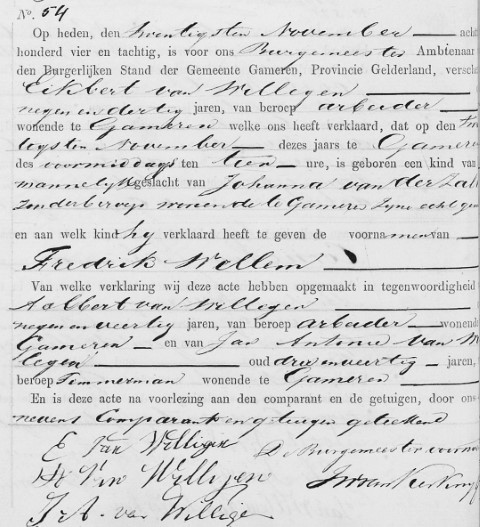 No. 54
Op heden, den twintigsten November acht
honderd vier en tachtig, is voor ons Burgemeester Ambtenaar
den Burgerlijken Stand der Gemeente Gameren, Provincie Gelderland, versch
Eikbert van Willegen acht
negenendertig jaren, van beroep arbeider
wonende te Gameren welke ons heeft verklaard, dat op den twin
tigsten November dezes jaars te Gamere
des voormiddags ten tien ure, is geboren een kind van
mannelijk geslacht van Johanna van der Zal
zonder beroep wonende te Gameren zijne echtgen
en aan welk kind hij verklaard heeft te geven de voornamen van
Fredrik Willem
Van welke verklaring wij deze acte hebben opgemaakt in tegenwoordigheid
Aalbert van Willegen
negenenveertig jaren, van beroep arbeider wonende
Gameren en van Jan Antonie van W
legen oud drieenveertig jaren,
beroep Timmerman wonende te Gameren
En is deze acte na voorlezing aan den comparant en de getuigen, door ons
nevens Comparant en getuigen geteekend
E van Willigen
van Willigen De Burgemeester voorn
J. A. van Willige